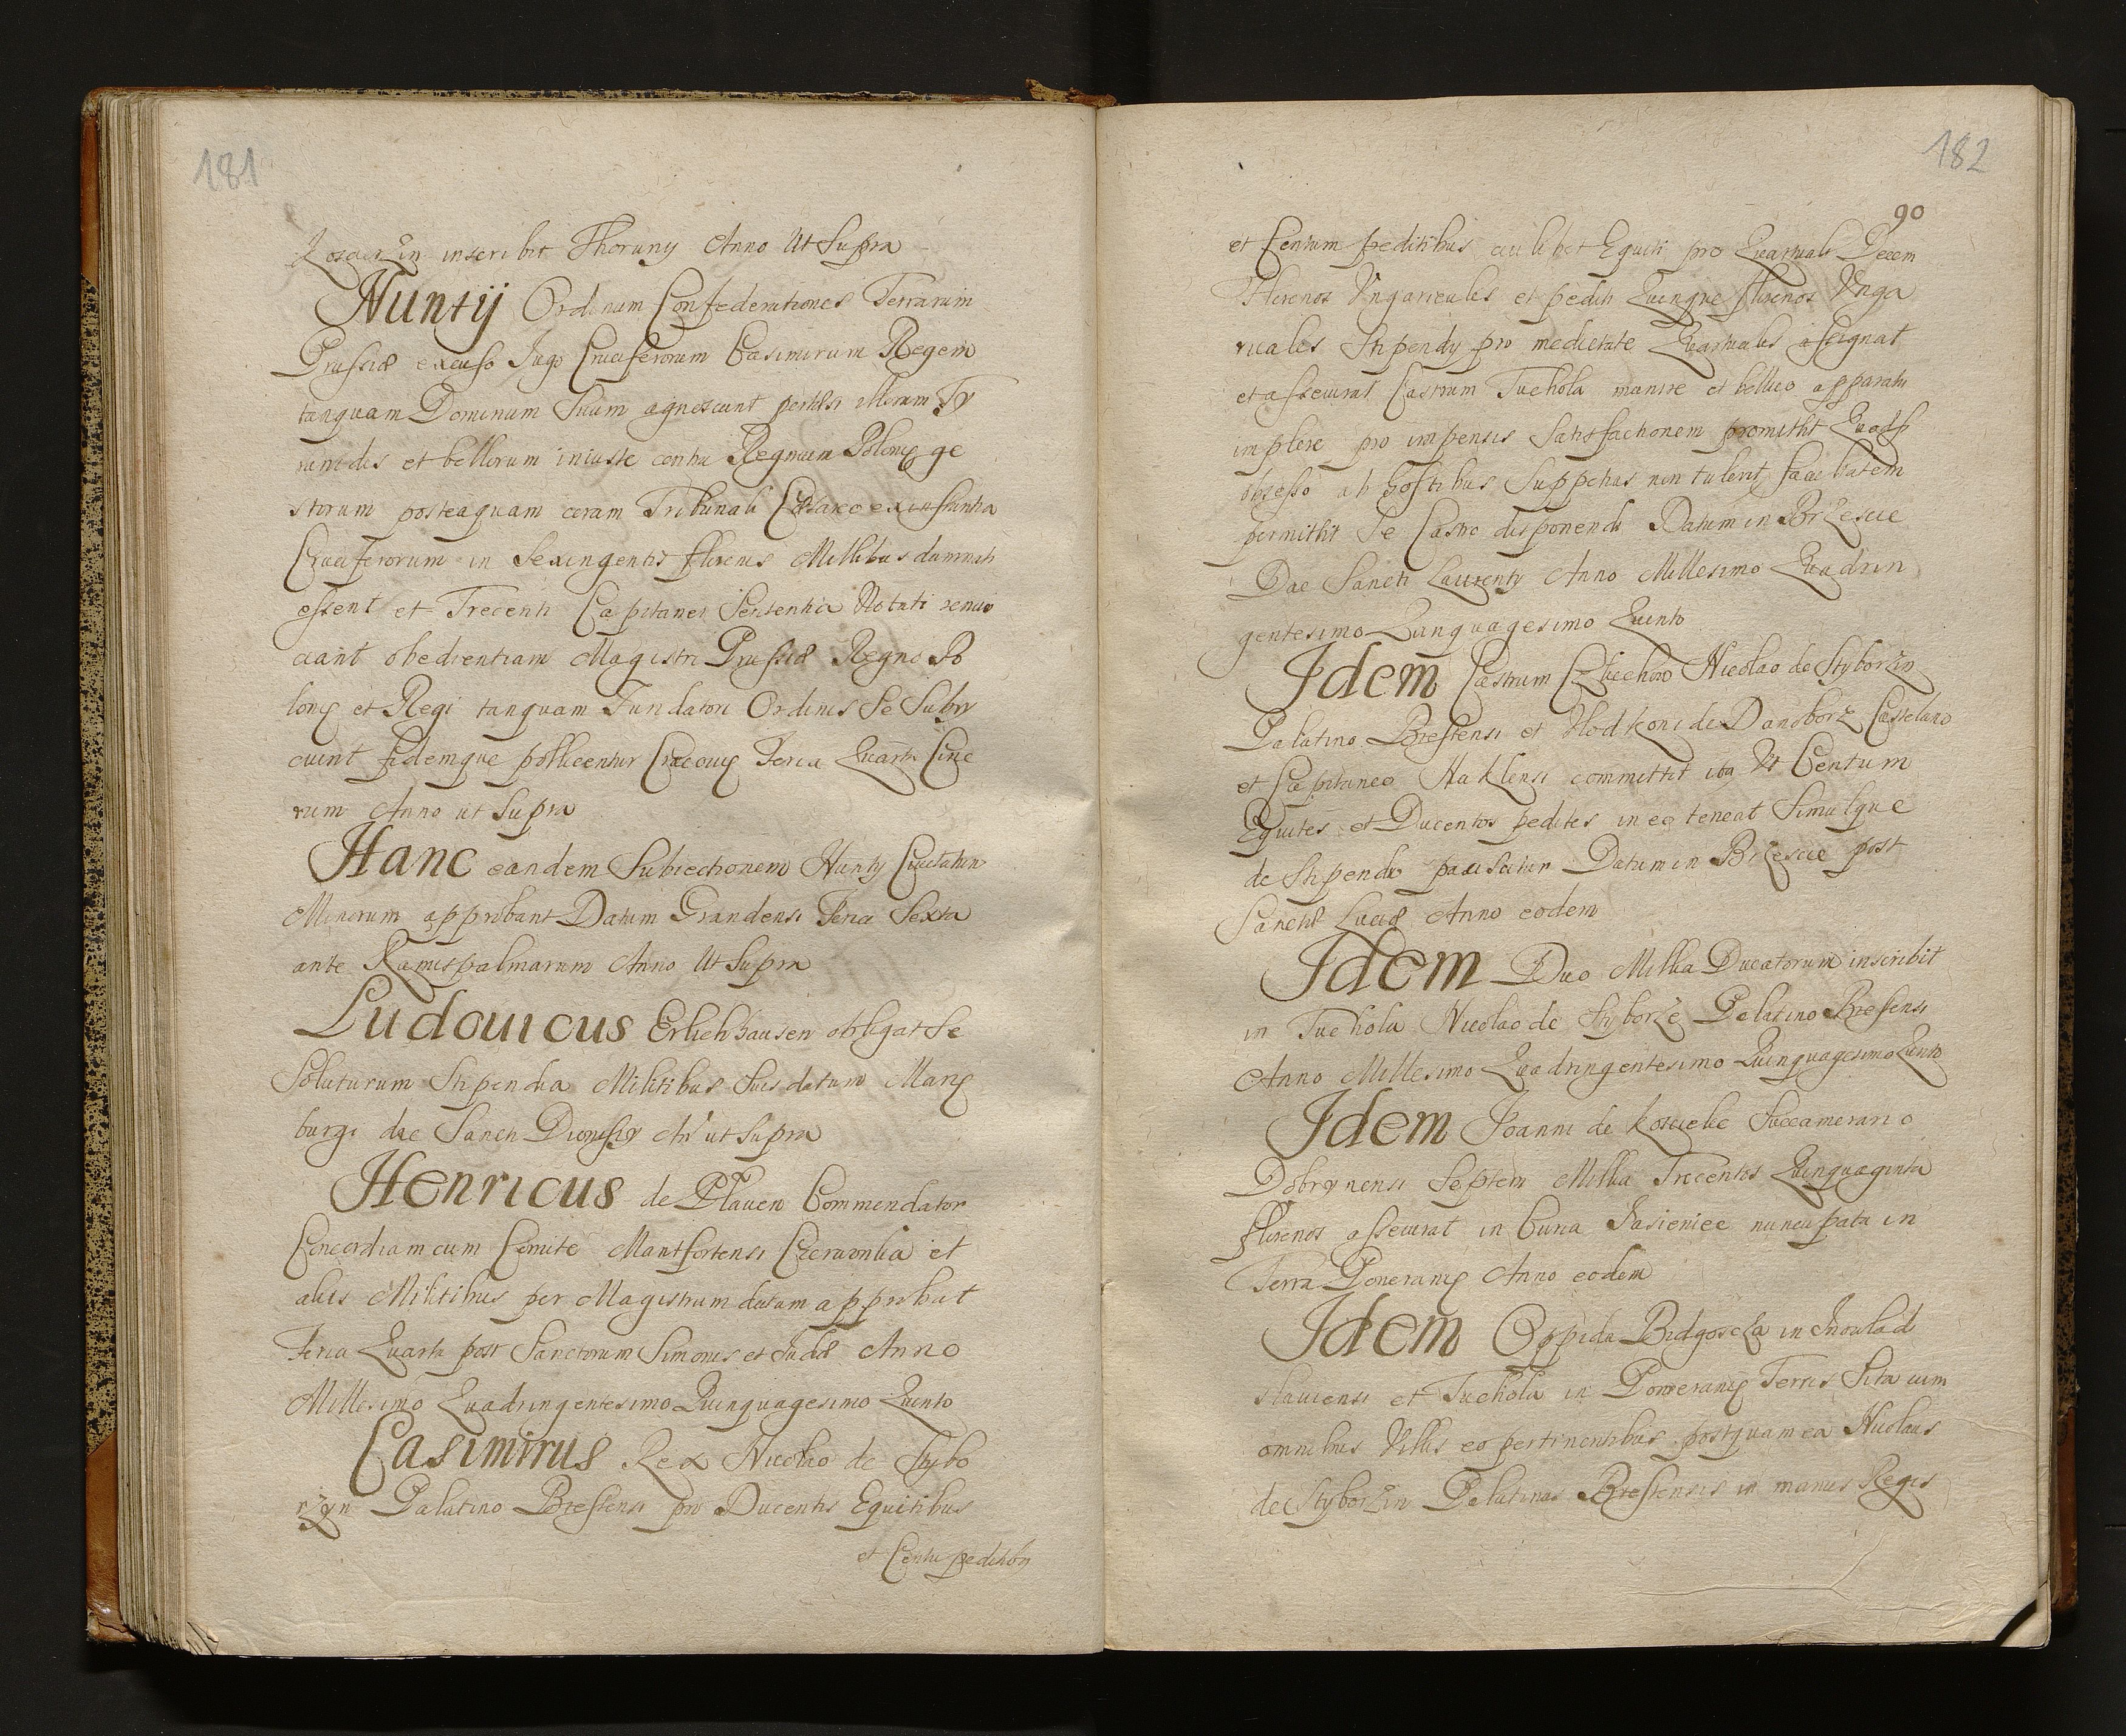 181
inscribit Thoruny Anno Ut Supra
Nuntij Ordinum Confederationes Terrarum
Prussiæ excusso Jugo Cruciferorum Casimirum Regem
tanquam Dominum Suum agnoscunt pertæsi illorum Ty
ranides et bellorum iniuste contra Regnum Poloniæ ge
storum posteaquam coram Tribunali Cæsareo ex
Cruciferorum in Sexingentis florenis Millibus damnati
essent et Trecenti Capitanei Sententia Notati renun
ciant obedientiam Magistri Prussiæ Regno Po
loniæ et Regi tanquam Fundatori Ordinis Se Subiy
ciunt fidemque pollicentur Cracoviæ Feria Quarta Cine
rum Anno ut Supra
Hanc eandem Subiectionem Nunty Civitatum
Minorum approbant Datum Grandensi Feria Sexta
ante Ramispalmarum Anno Ut Supra
Ludouicus Erlichhausen obligat Se
Soluturum Stipendia Militibus Suis datum Mariæ
burgi die Sancti Dionisy An ut Supra
Henricus de Plauen Commendator
Concordiam cum Comite Mantfortensi Czerwonka et
aliis Militibus per Magistrum datam approbat
Feria Quarta post Sanctorum Simonis et Judæ Anno
Millesimo Quadringentesimo Quinquagesimo Quinto
Casimirus Rex Nicolao de Stybo
rzyn Palatino Brestensi pro Ducentis Equitibus
et Centu peditibus
182
90
et Centum peditibus cuilibet Equiti pro Quartuali Decem
Florenos Vngaricales et pediti Quinque florenos Vnga
ricales Stipendy pro medietate Quartualis assignat
et assecurat Castrum Tuchola munire et bellico apparatu
implere pro impensis Satisfactionem promittit Quodsi
obsesso ab hostibus Suppetias non tulerit facultatem
permittit Se Castro disponendi Datum in Brzescie
Die Sancti Laurenty Anno Millesimo Quadrin
gentesimo Quinquagesimo Quinto
Idem Castrum Czluchow Nicolao de Styborzin
Palatino Brestensi et Wlodkoni de Danaborz Castelano
et Capitaneo Naklensi committit ita Ut Centum
Equites et Ducentos pedites in eo teneat Simulque
de Stipendio paciscitur Datum in Brzescie post
Sanctæ Luciæ Anno eodem
Idem Duo Millia Ducatorum inscribit
in Tuchola Nicolao de Styborze Palatino Brestensi
Anno Millesimo Quadringentesimo Quinquagesimo Quinto
Idem Joanni de Koscielec Succamerario
Dobrynensi Septem Millia Trecentos Quinquaginta
florenos assecurat in Curia Jasieniec nuncupata in
Terra Pomeraniæ Anno eodem
Idem Oppida Bidgoscza in Inowlad
slauiensi et Tuchola in Pomeraniæ Terris Sita cum
omnibus Villis eo pertinentibus postquam ea Nicolaus
de Styborzin Palatinus Brestensis in manus Regis